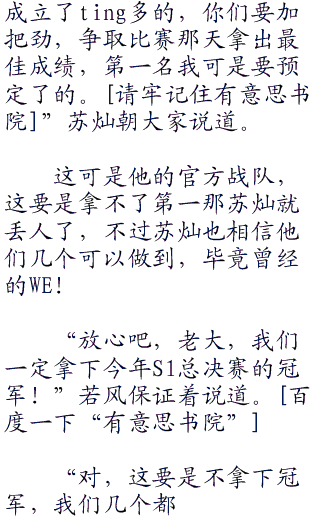 成立了ting多的，你们要加
把劲，争取比赛那天拿出最
佳成绩，第一名我可是要预
定了的。[请牢记住有意思书
院]”苏灿朝大家说道。
这可是他的官方战队，
这要是拿不了第一那苏灿就
丢人了，不过苏灿也相信他
们几个可以做到，毕竟曾经
的WE！
“放心吧，老大，我们
一定拿下今年S1总决赛的冠
军！”若风保证着说道。[百
度一下“有意思书院”]
“对，这要是不拿下冠
军，我们几个都